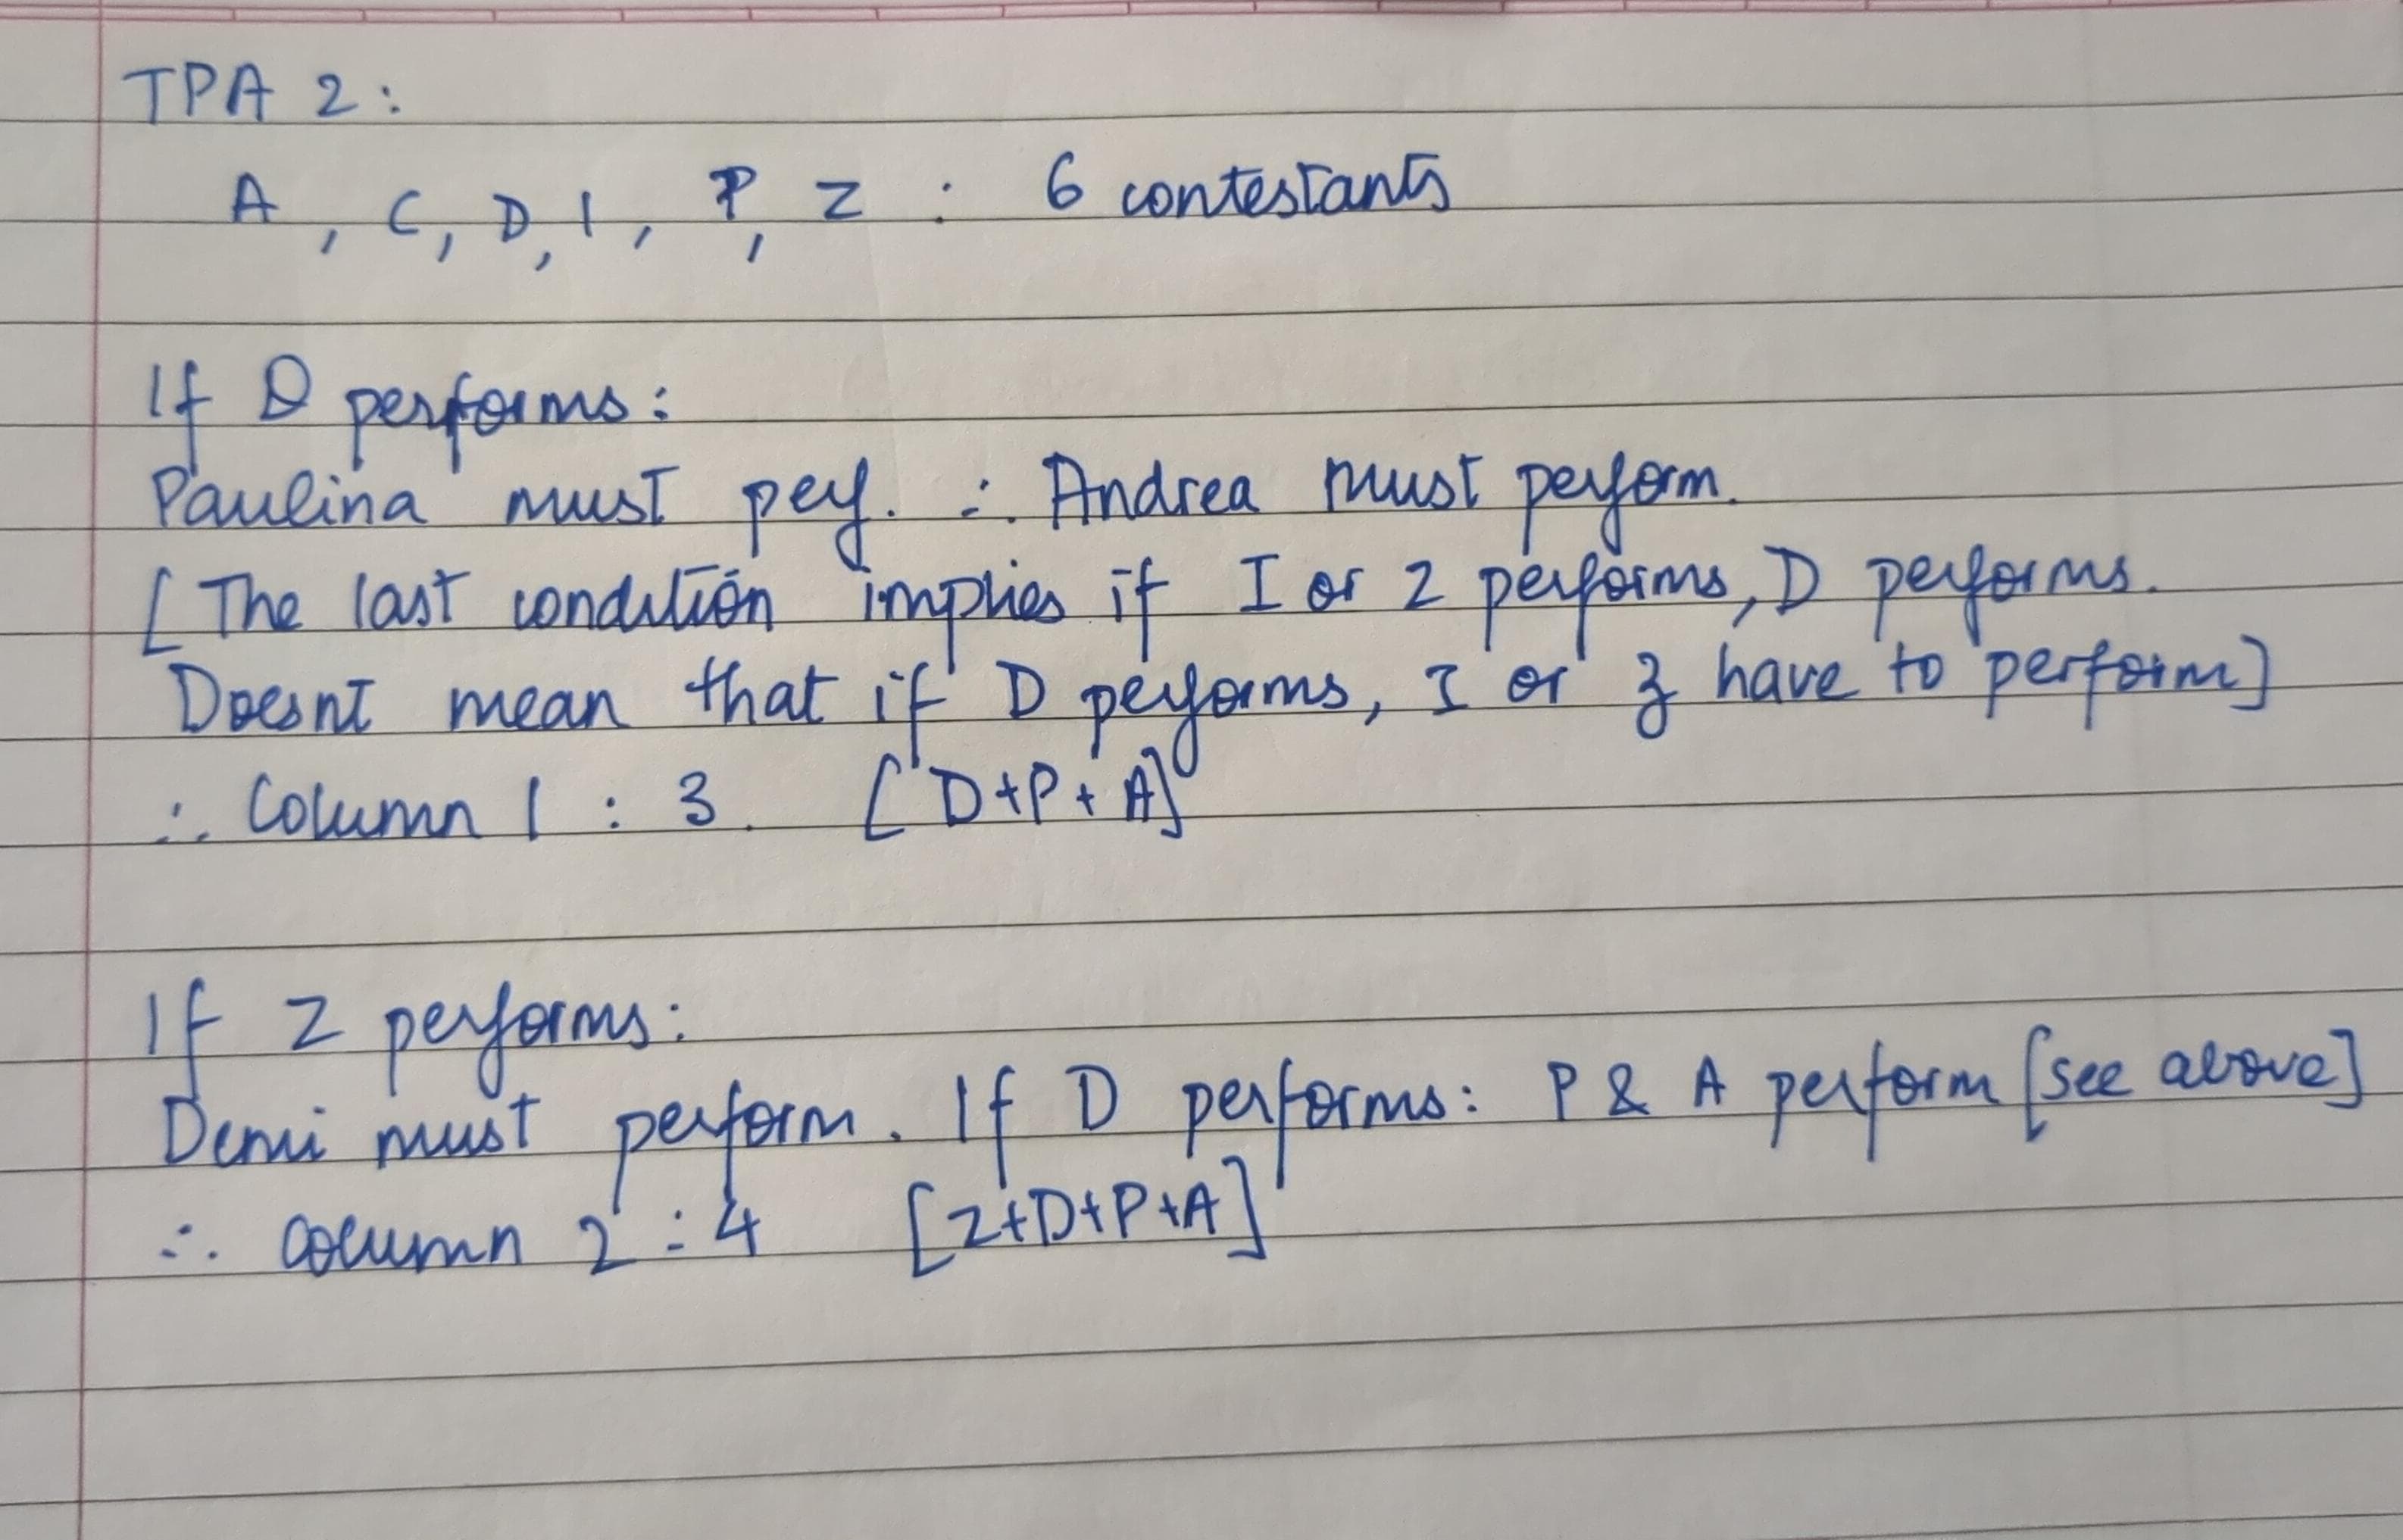 TPA 2:
A, C, D, I, P, Z : 6 contestants
If D performs:
Paulina must perf. ∴ Andrea must perform.
[The last condition implies if I or Z performs, D performs.
Doesnt mean that if D performs, I or z have to perform]
∴ Column 1 : 3. [D+P+A]
If Z performs:
Demi must perform. If D performs: P & A perform [see above]
∴ column 2 : 4 [Z+D+P+A]